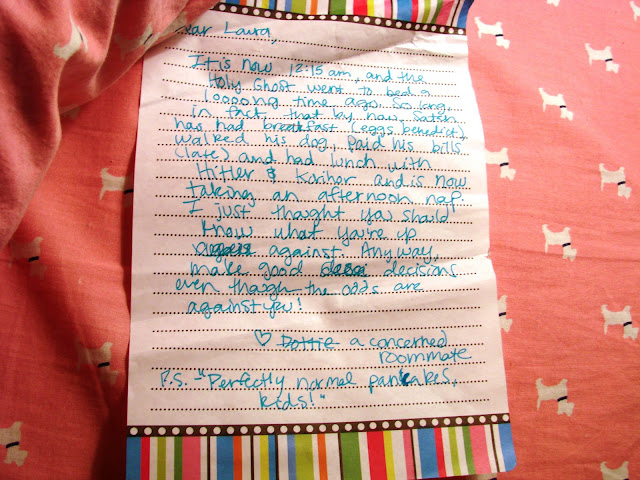 Dear Laura,
It is now 12:15 am, and the
Holy Ghost went to bed a
loooong time ago. So long,
in fact, that by now Satan
has had breakfast (eggs benedict),
walked his dog, paid his bills
(late) and had lunch with
Hitler & Korihor and is now
taking an afternoon nap.
I just thought you should
know what you're up
against. Anyway,
make good decisions
even though the odds are
against you!
♡ Dottie a concerned
roommate
P.S. - "Perfectly normal pancakes,
kids!"